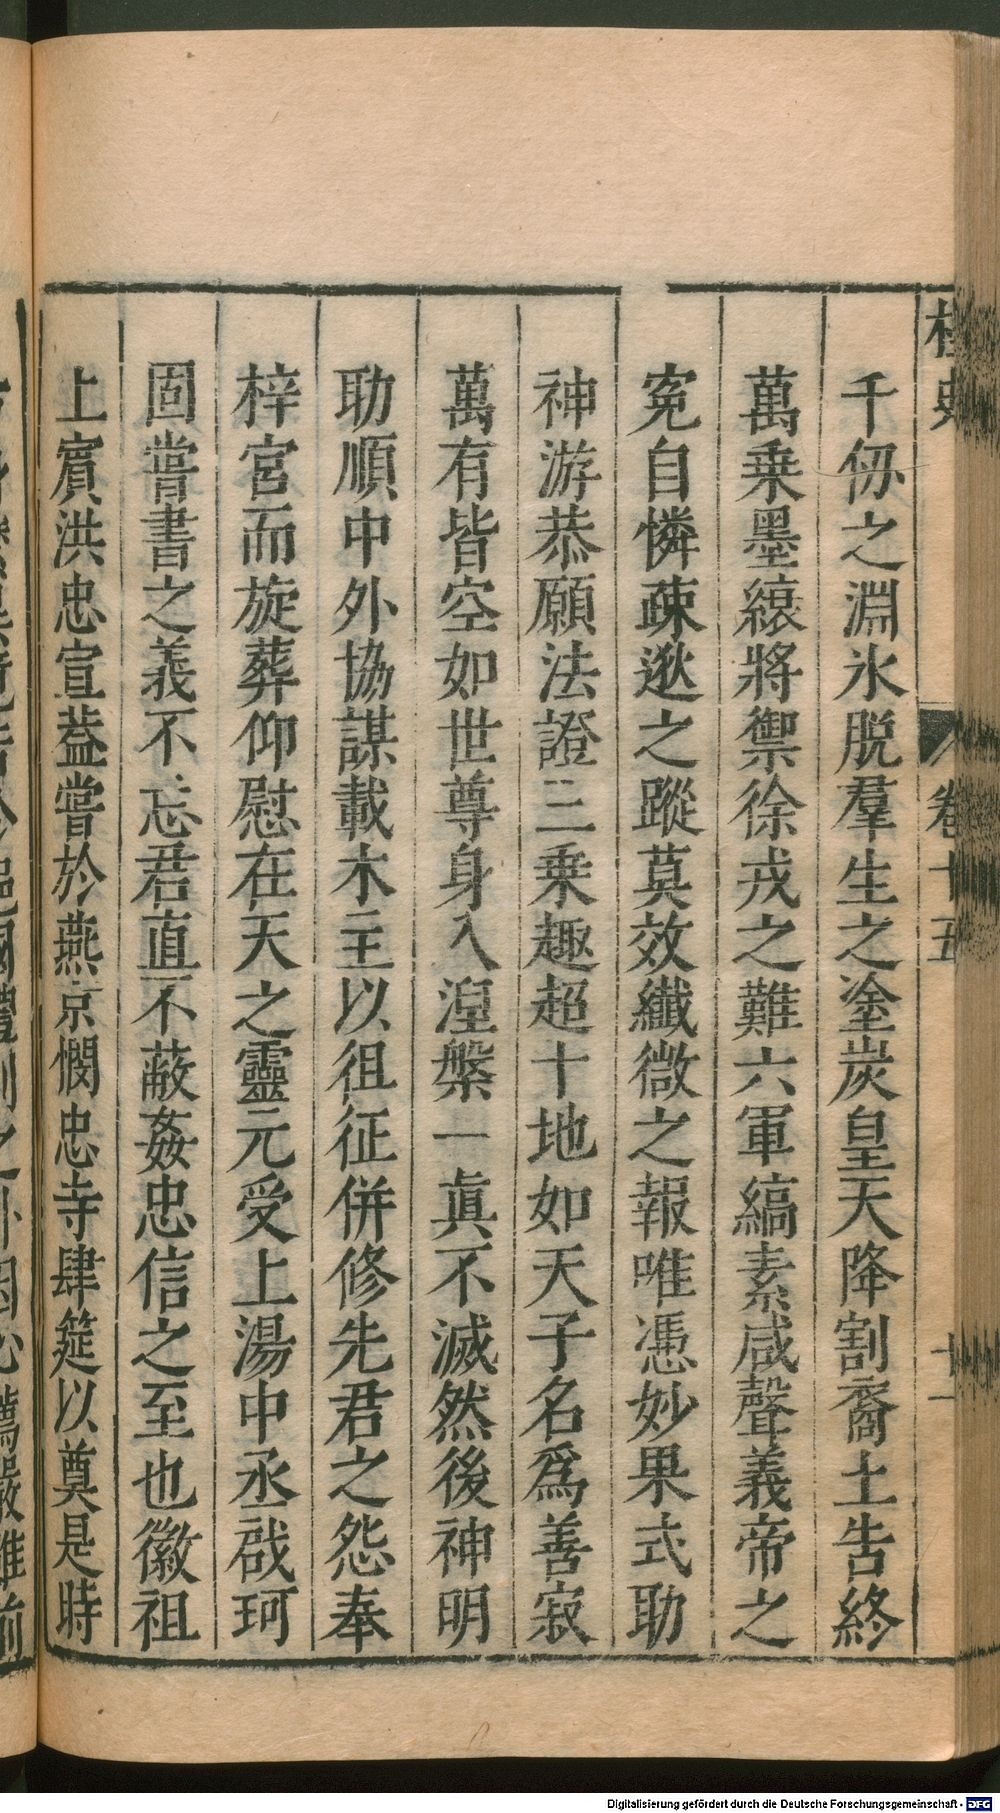 桯史
卷十五
十一
千仭之淵氷脱羣生之塗炭皇天降割裔土告終
萬乗墨縗將禦徐戎之難六軍縞素咸聲義帝之
寃自憐疎逖之蹤莫效纖微之報唯憑妙果式助
神游恭願法證三乗趣超十地如天子名爲善寂
萬有皆空如世尊身入湼槃一眞不滅然後神明
助順中外協謀載木主以徂征併修先君之怨奉
梓宮而旋葬仰慰在天之靈元受上湯中丞戩珂
固嘗書之義不忘君直不蔽姦忠信之至也徽祖
上賓洪忠宣葢嘗於燕京憫忠寺肆筵以奠是時
Digitalisierung gefördert durch die Deutsche Forschungsgemeinschaft - DFG